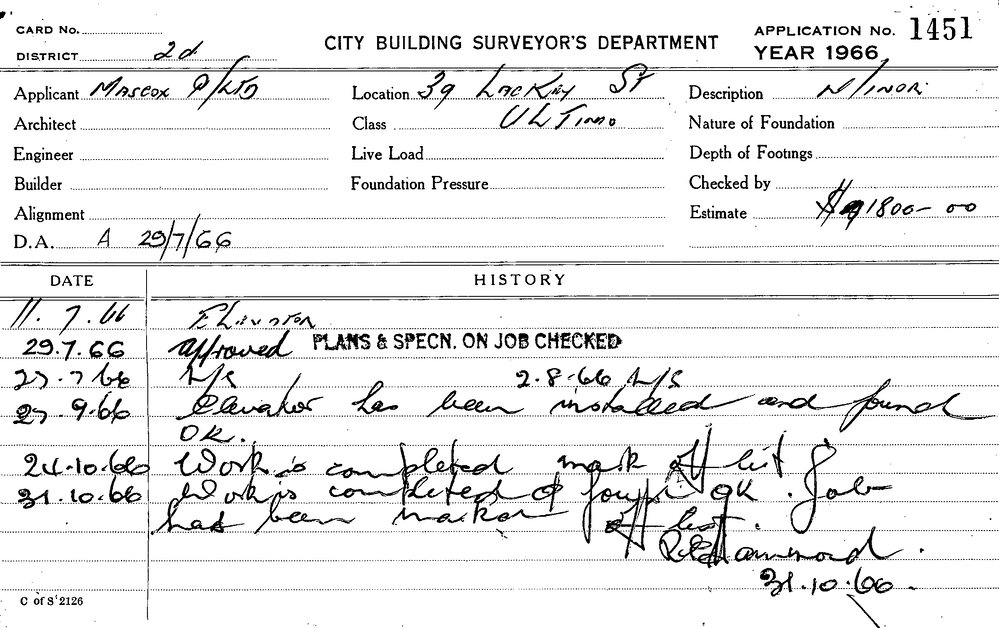 CARD No.
DISTRICT 2d
CITY BUILDING SURVEYOR'S DEPARTMENT
APPLICATION No. 1451
YEAR 1966
Applicant Mascox P/LTD
Location 39 Lackey St
Description Minor
Architect
Class Ultimo
Nature of Foundation
Engineer
Live Load
Depth of Footings
Builder
Foundation Pressure
Checked by
Alignment
Estimate $ 1800-00
D.A. A 29/7/66
DATE
HISTORY
11.7.66 Elevator
29.7.66 approved PLANS & SPECN. ON JOB CHECKED
27.7.66 2.8.66
27.9.66 Elevator has been installed and found
OK.
24.10.66 Work is completed mark off list
31.10.66 Work is completed & found OK. Job
has been off list.
Hammond.
31.10.66.
C of S 2126